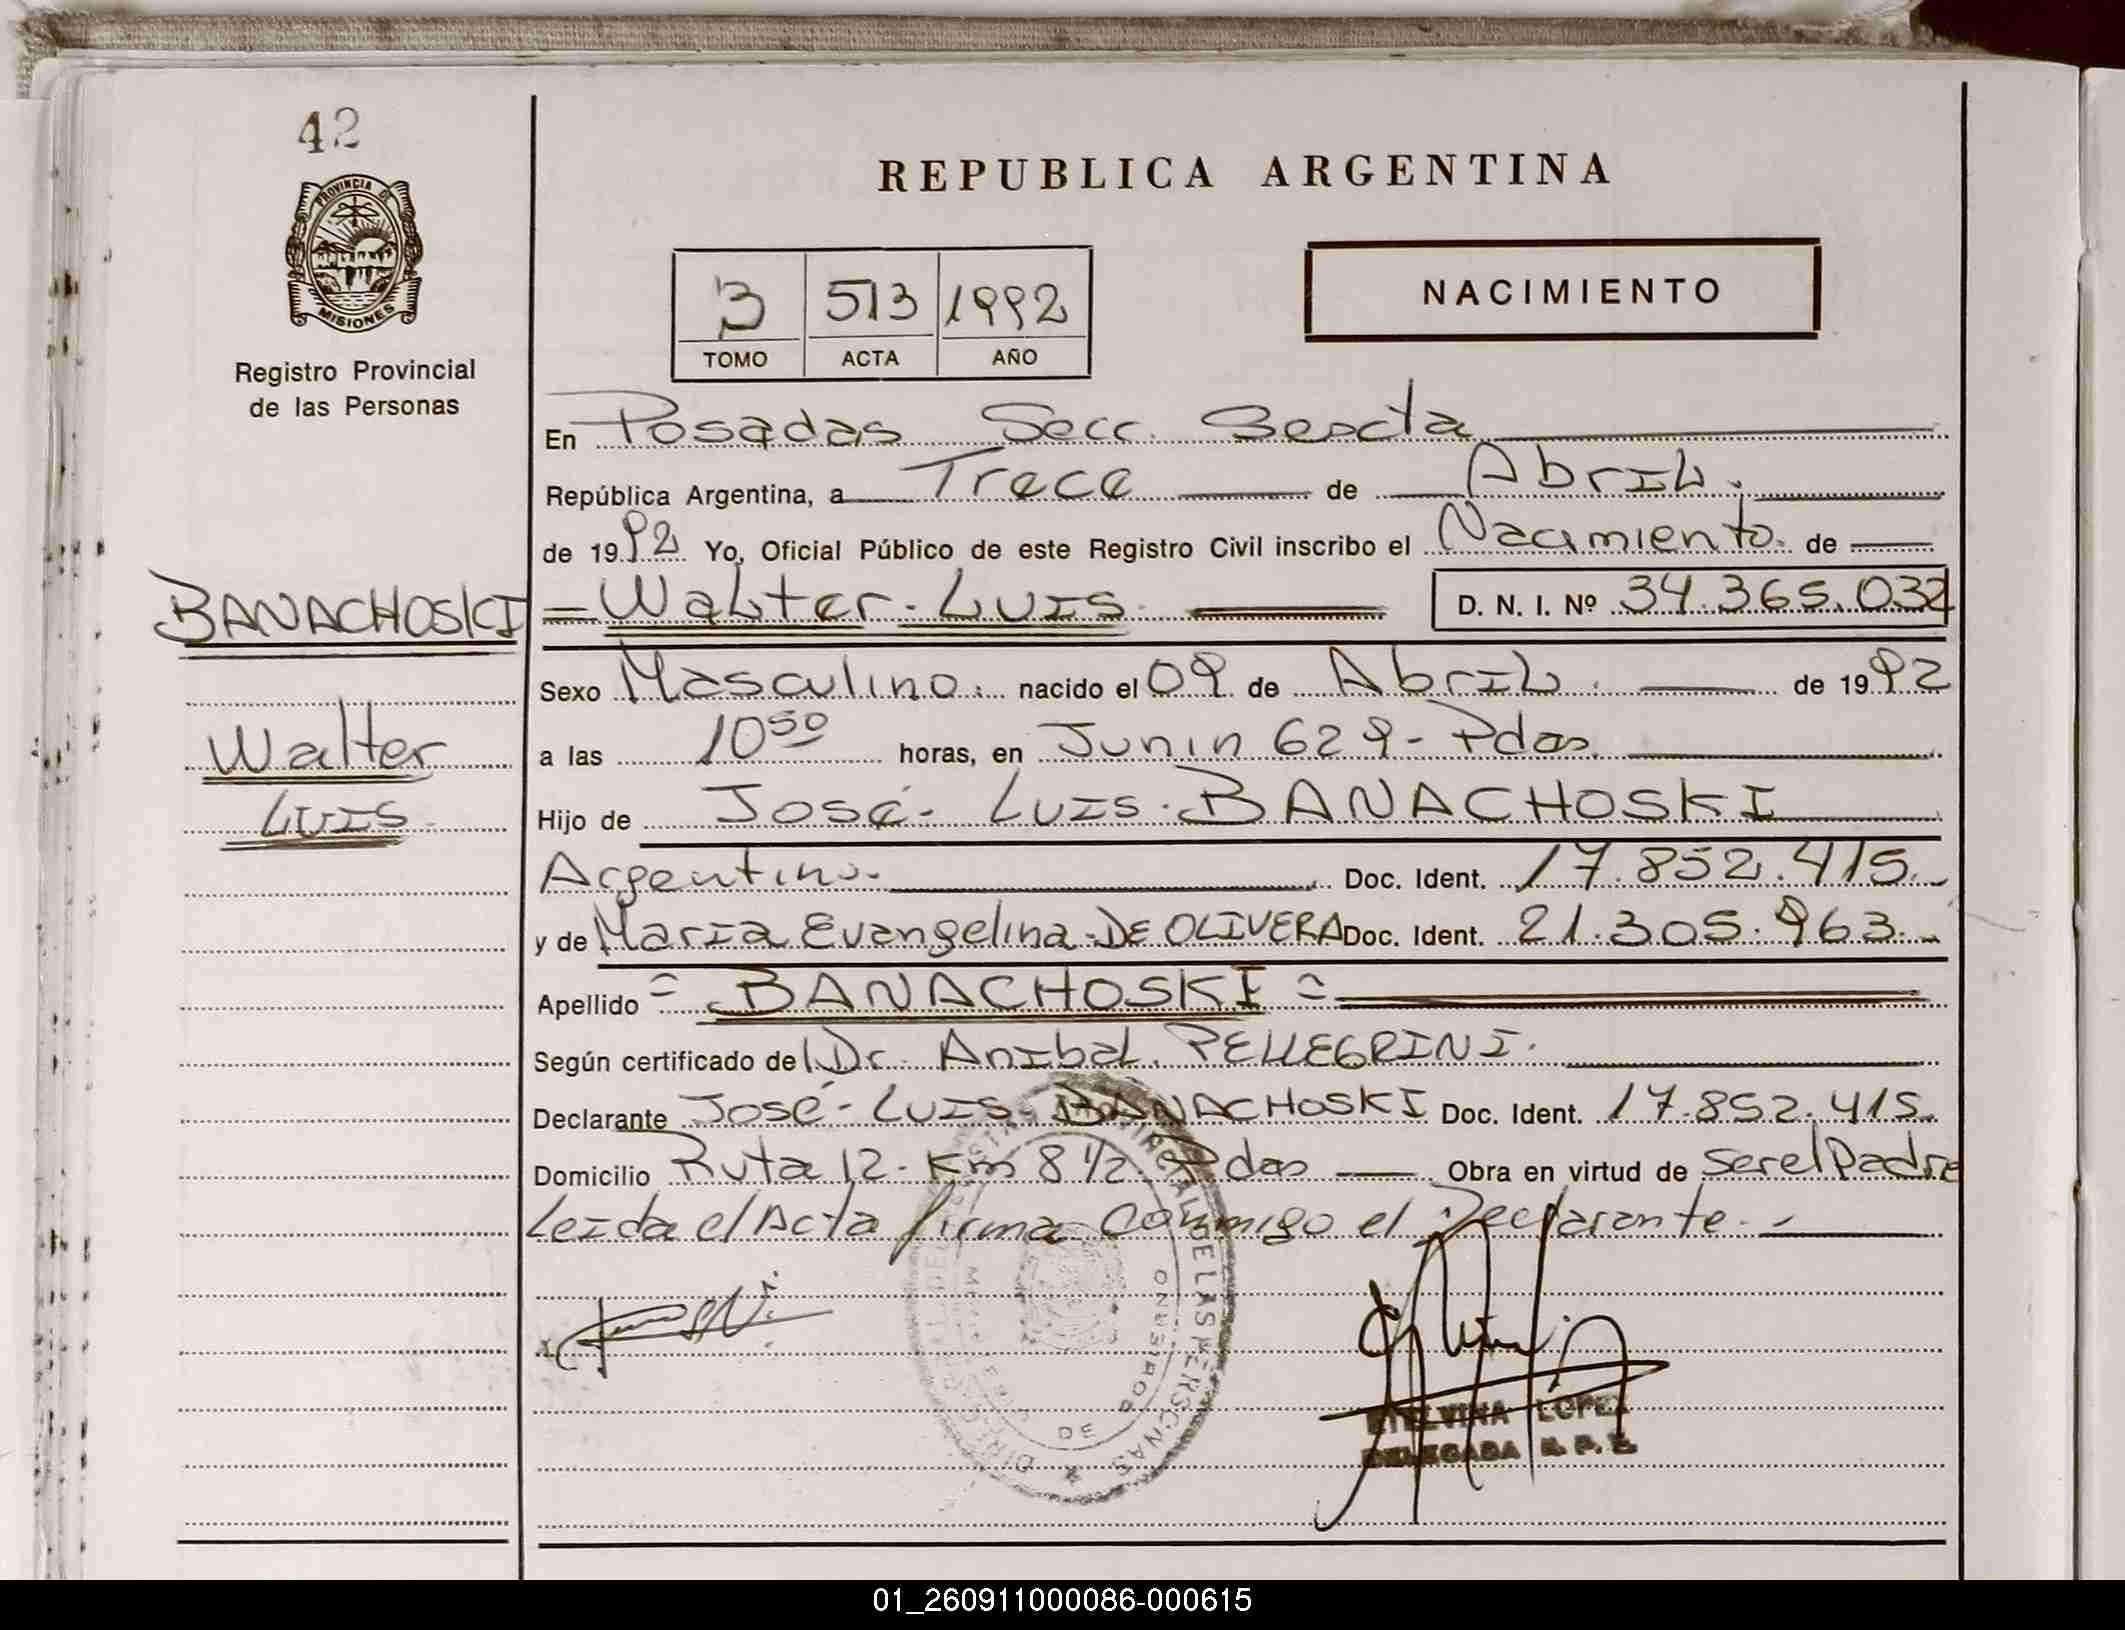 42
PROVINCIA DE
MISIONES
Registro Provincial
de las Personas
BANACHOSKI
Walter
LUIS.
REPUBLICA ARGENTINA
3 513 1992
TOMO ACTA AÑO
NACIMIENTO
En Posadas Secc. Sexta
República Argentina, a Trece de Abril.
de 1992 Yo, Oficial Público de este Registro Civil inscribo el Nacimiento. de
= Walter. Luis. D. N. I. Nº 34.365.032
Sexo Masculino. nacido el 09 de Abril. de 1992
a las 10 50 horas, en Junin 629- Pdas.
Hijo de José- Luis. BANACHOSKI
Argentino. Doc. Ident. 17.852.415.
y de María Evangelina-DE OLIVERA Doc. Ident. 21.305.963.
Apellido = BANACHOSKI =
Según certificado de Dr. Anibal. PELLEGRINI.
Declarante José- Luis- BANACHOSKI Doc. Ident. 17.852.415.
Domicilio Ruta 12- Km 8 1/2. Pdas Obra en virtud de ser el Padre
Leida el Acta firma Conmigo el Declarante.-
ETELVINA LOPEZ
DELEGADA R. P. P.
01_260911000086-000615